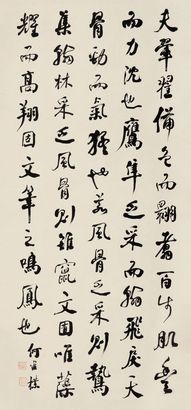 夫翬翟備色而翾翥百步肌豐
而力沈也鷹隼乏采而翰飛戾天
骨勁而氣猛也若風骨乏采則鷙
集翰林采乏風骨則雉竄文囿唯藻
耀而高翔固文筆之鳴鳳也 何維樸